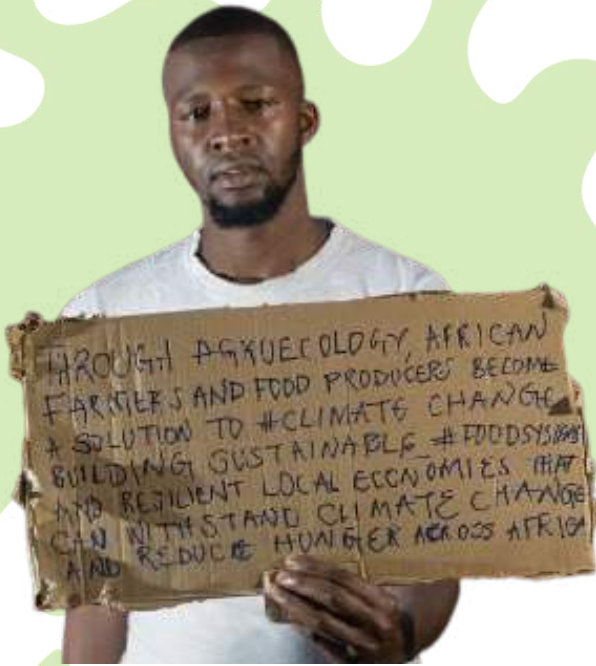 THROUGH AGROECOLOGY, AFRICAN
FARMERS AND FOOD PRODUCERS BECOME
A SOLUTION TO #CLIMATE CHANGE
BUILDING SUSTAINABLE #FOODSYSTEMS
AND RESILIENT LOCAL ECONOMIES THAT
CAN WITHSTAND CLIMATE CHANGE
AND REDUCE HUNGER ACROSS AFRICA